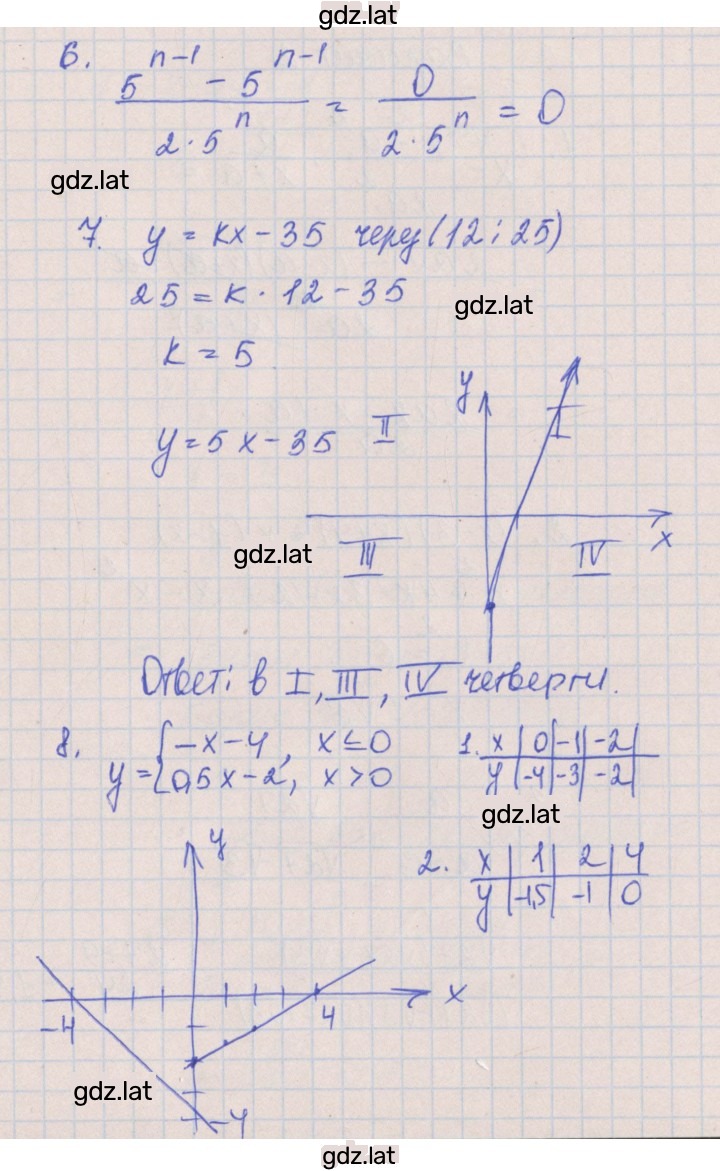 gdz.lat
6. 5^(n-1) - 5^(n-1) / 2·5^n = 0 / 2·5^n = 0
gdz.lat
7. y = kx - 35 через (12; 25)
25 = k · 12 - 35
gdz.lat
k = 5
y = 5x - 35
y
II
I
x
gdz.lat
III
IV
Ответ: в I, III, IV четверти.
8. y = { -x - 4, x ≤ 0
0,5x - 2, x > 0
1. x | 0 | -1 | -2 |
y | -4 | -3 | -2 |
gdz.lat
2. x | 1 | 2 | 4
y | -1,5 | -1 | 0
y
x
-4
4
gdz.lat
-4
gdz.lat